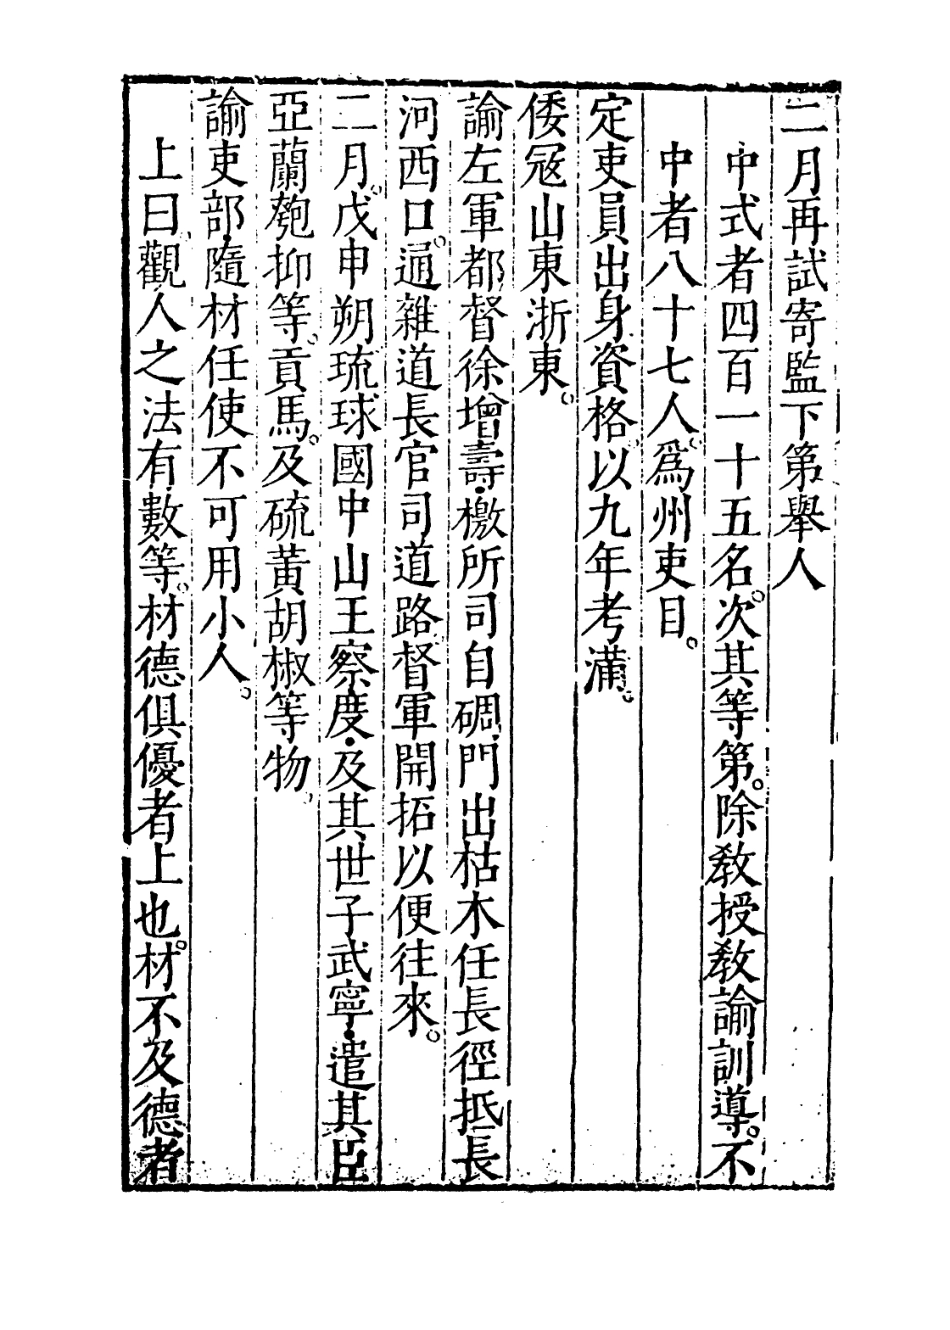 二月再試寄監下第舉人
中式者四百一十五名。次其等第。除教授教諭訓導。不
中者八十七人。爲州吏目。
定吏員出身資格以九年考滿。
倭寇山東浙東。
諭左軍都督徐增壽.檄所司自碉門出枯木任長徑抵長
河西口。通雜道長官司道路督軍開拓以便往來。
二月。戊申朔琉球國中山王察度.及其世子武寧.遣其臣
亞蘭匏抑等。貢馬。及硫黄胡椒等物。
諭吏部.隨材任使不可用小人。
上曰觀人之法有數等。材德俱優者上也。材不及德者